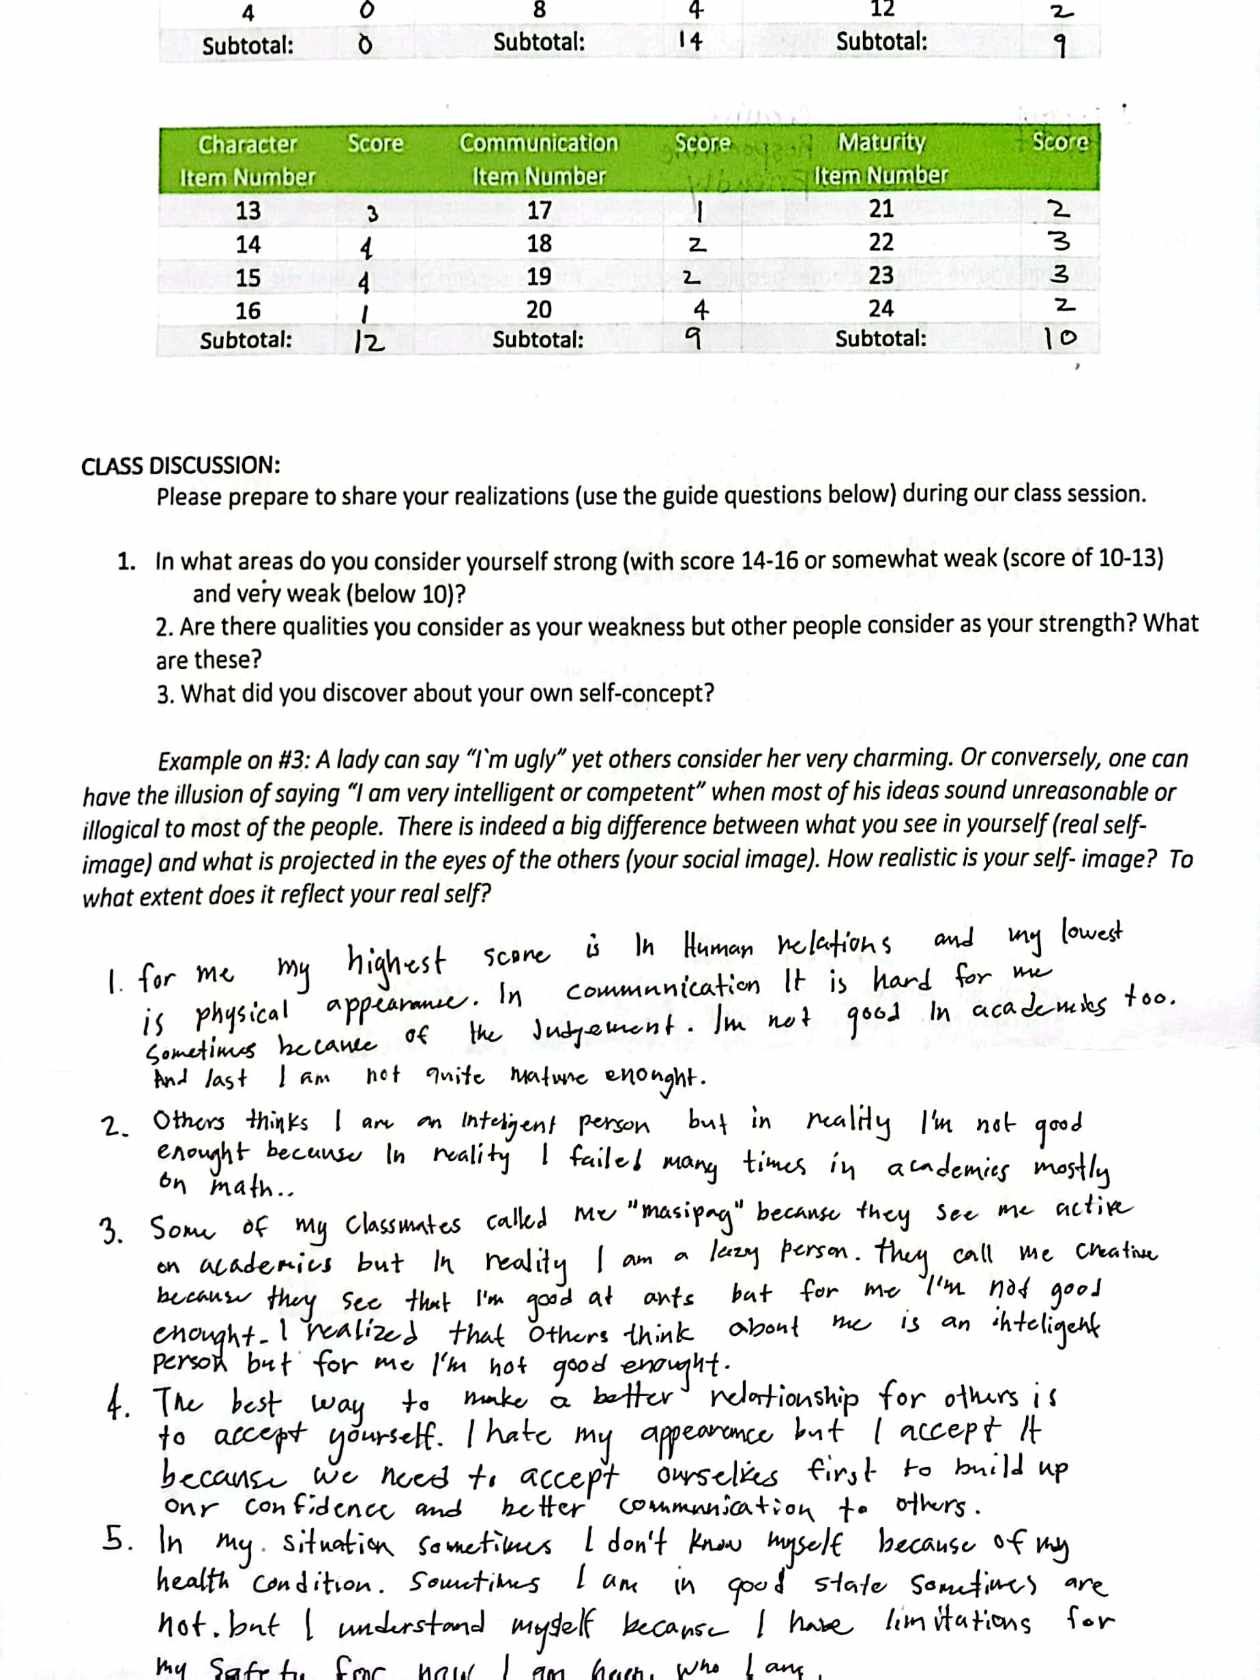 4 0 8 4 12 2
Subtotal: 0 Subtotal: 14 Subtotal: 9
Character Score Communication Score Maturity Score
Item Number Item Number Item Number
13 3 17 1 21 2
14 4 18 2 22 3
15 4 19 2 23 3
16 1 20 4 24 2
Subtotal: 12 Subtotal: 9 Subtotal: 10
CLASS DISCUSSION:
Please prepare to share your realizations (use the guide questions below) during our class session.
1. In what areas do you consider yourself strong (with score 14-16 or somewhat weak (score of 10-13)
and very weak (below 10)?
2. Are there qualities you consider as your weakness but other people consider as your strength? What
are these?
3. What did you discover about your own self-concept?
Example on #3: A lady can say “I`m ugly” yet others consider her very charming. Or conversely, one can
have the illusion of saying “I am very intelligent or competent” when most of his ideas sound unreasonable or
illogical to most of the people. There is indeed a big difference between what you see in yourself (real self-
image) and what is projected in the eyes of the others (your social image). How realistic is your self- image? To
what extent does it reflect your real self?
1. for me my highest score is In Human relations and my lowest
is physical appearance. In communication It is hard for me
Sometimes because of the Judgement. Im not good In academics too.
And last I am not quite mature enought.
2. Others thinks I am an Inteligent person but in reality I'm not good
enought because In reality I failed many times in academics mostly
on math..
3. Some of my Classmates called me "masipag" because they see me active
on academics but In reality I am a lazy person. they call me creative
because they see that I'm good at arts but for me I'm not good
enought. I realized that Others think about me is an inteligent
person but for me I'm not good enought.
4. The best way to make a better relationship for others is
to accept yourself. I hate my appearance but I accept It
because we need to accept ourselves first to build up
our confidence and better communication to others.
5. In my. situation sometimes I don't know myself because of my
health condition. Sometimes I am in good state sometimes are
not. but I understand myself because I have limitations for
my Safety. For now I am who I am.